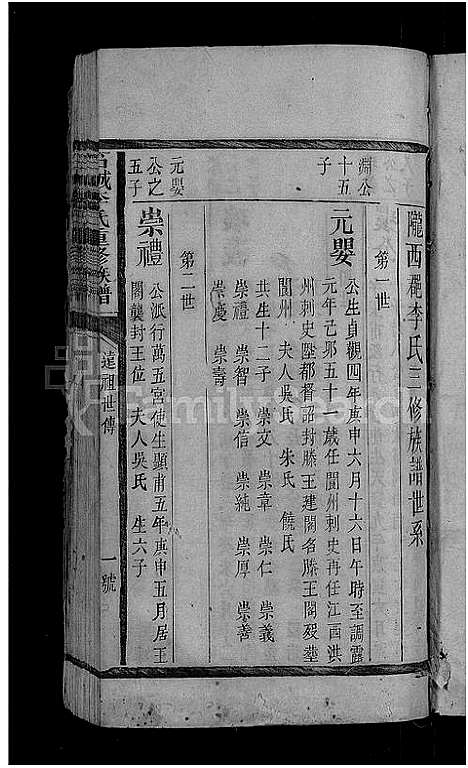 隴西郡李氏三修族譜世系
第一世
淵公
十五
子
元嬰
公生貞觀四年庚申六月十六日午時至調露
元年己卯五十一歲任閬州刺史再任江西洪
州刺史歷都督詔封滕王建閣名滕王閣歿塟
閬州 夫人吳氏 朱氏 饒氏
共生十二子 崇文 崇章 崇仁 崇義
崇禮 崇智 崇信 崇純 崇厚 崇善
崇慶 崇壽
第二世
元嬰
公之
五子
崇禮
公派行萬五宮使生顯甫五年庚申五月居王
閣襲封王位 夫人吳氏 生六子
城李氏重修族譜
遠祖世傳
一號
FamilySearch